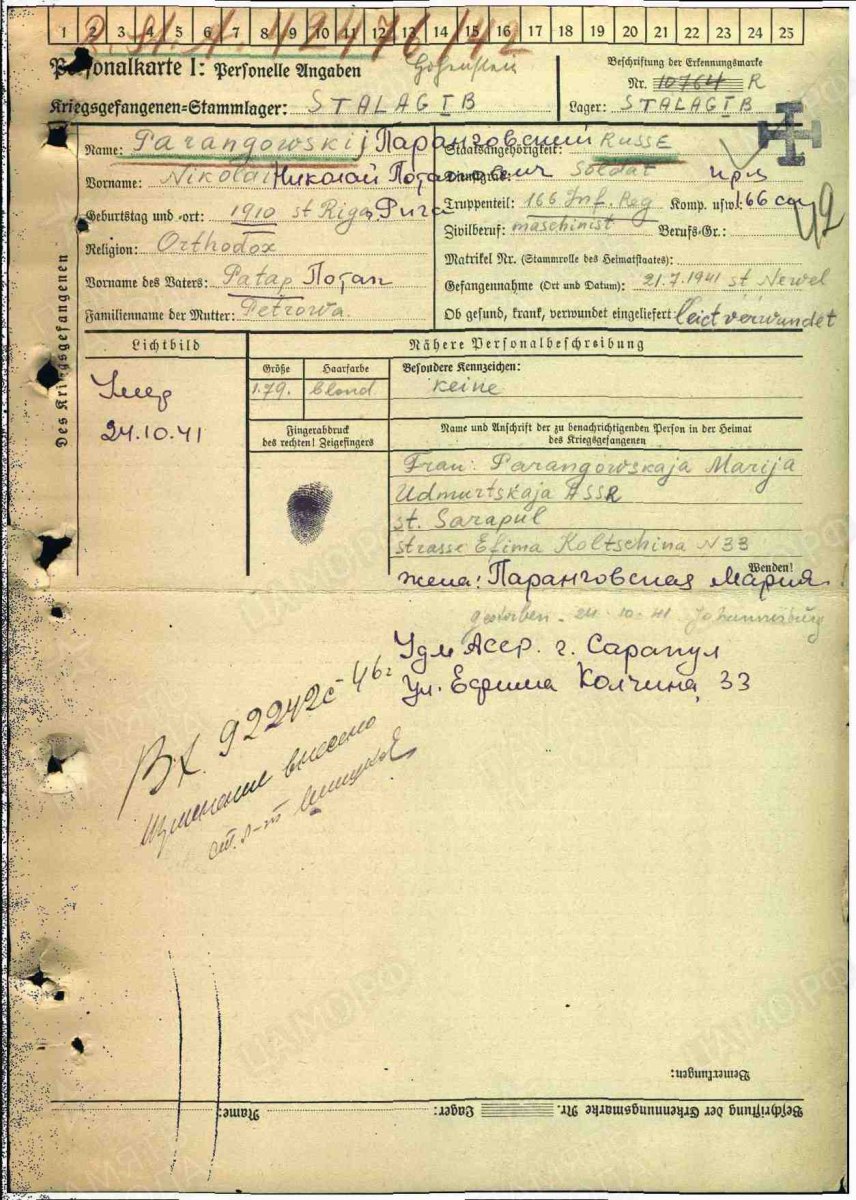 1 2 3 4 5 6 7 8 9 10 11 12 13 14 15 16 17 18 19 20 21 22 23 24 25
42476/42
Personalkarte I: Personelle Angaben
Kriegsgefangenen=Stammlager: STALAG IB
Beschriftung der Erkennungsmarke
Nr. 10764 R
Lager: STALAG IB
Des Kriegsgefangenen
Name: Parangowskij Паранговский
Vorname: Nikolai Николай Потапович
Geburtstag und =ort: 1910 st Riga, Рига
Religion: Orthodox
Vorname des Vaters: Patap Потап
Familienname der Mutter: Petrowa
Staatsangehörigkeit: Russe
Dienstgrad: Soldat
Truppenteil: 166 Inf. Reg Komp. usw.: 166
Zivilberuf: maschinist Berufs=Gr.:
Matrikel Nr. (Stammrolle des Heimatstaates):
Gefangennahme (Ort und Datum): 21.7.1941 st Newel
Ob gesund, krank, verwundet eingeliefert: leict verwundet
Lichtbild
Умер
24.10.41
Nähere Personalbeschreibung
Größe Haarfarbe Besondere Kennzeichen:
1.79. blond keine
Fingerabdruck
des rechten! Zeigefingers
Name und Anschrift der zu benachrichtigenden Person in der Heimat
des Kriegsgefangenen
Frau: Parangowskaja Marija
Udmurtskaja ASSR
st. Sarapul
strasse Efima Koltschina N 33
Wenden!
жена: Паранговская Мария
gestorben - 24.10.41 Johannisburg
Удм Асср. г. Сарапул
Ул. Ефима Колчина, 33
Вх. 92242с-46г
внесено
Bemerkungen:
Beschriftung der Erkennungsmarke Nr. Lager: Name: